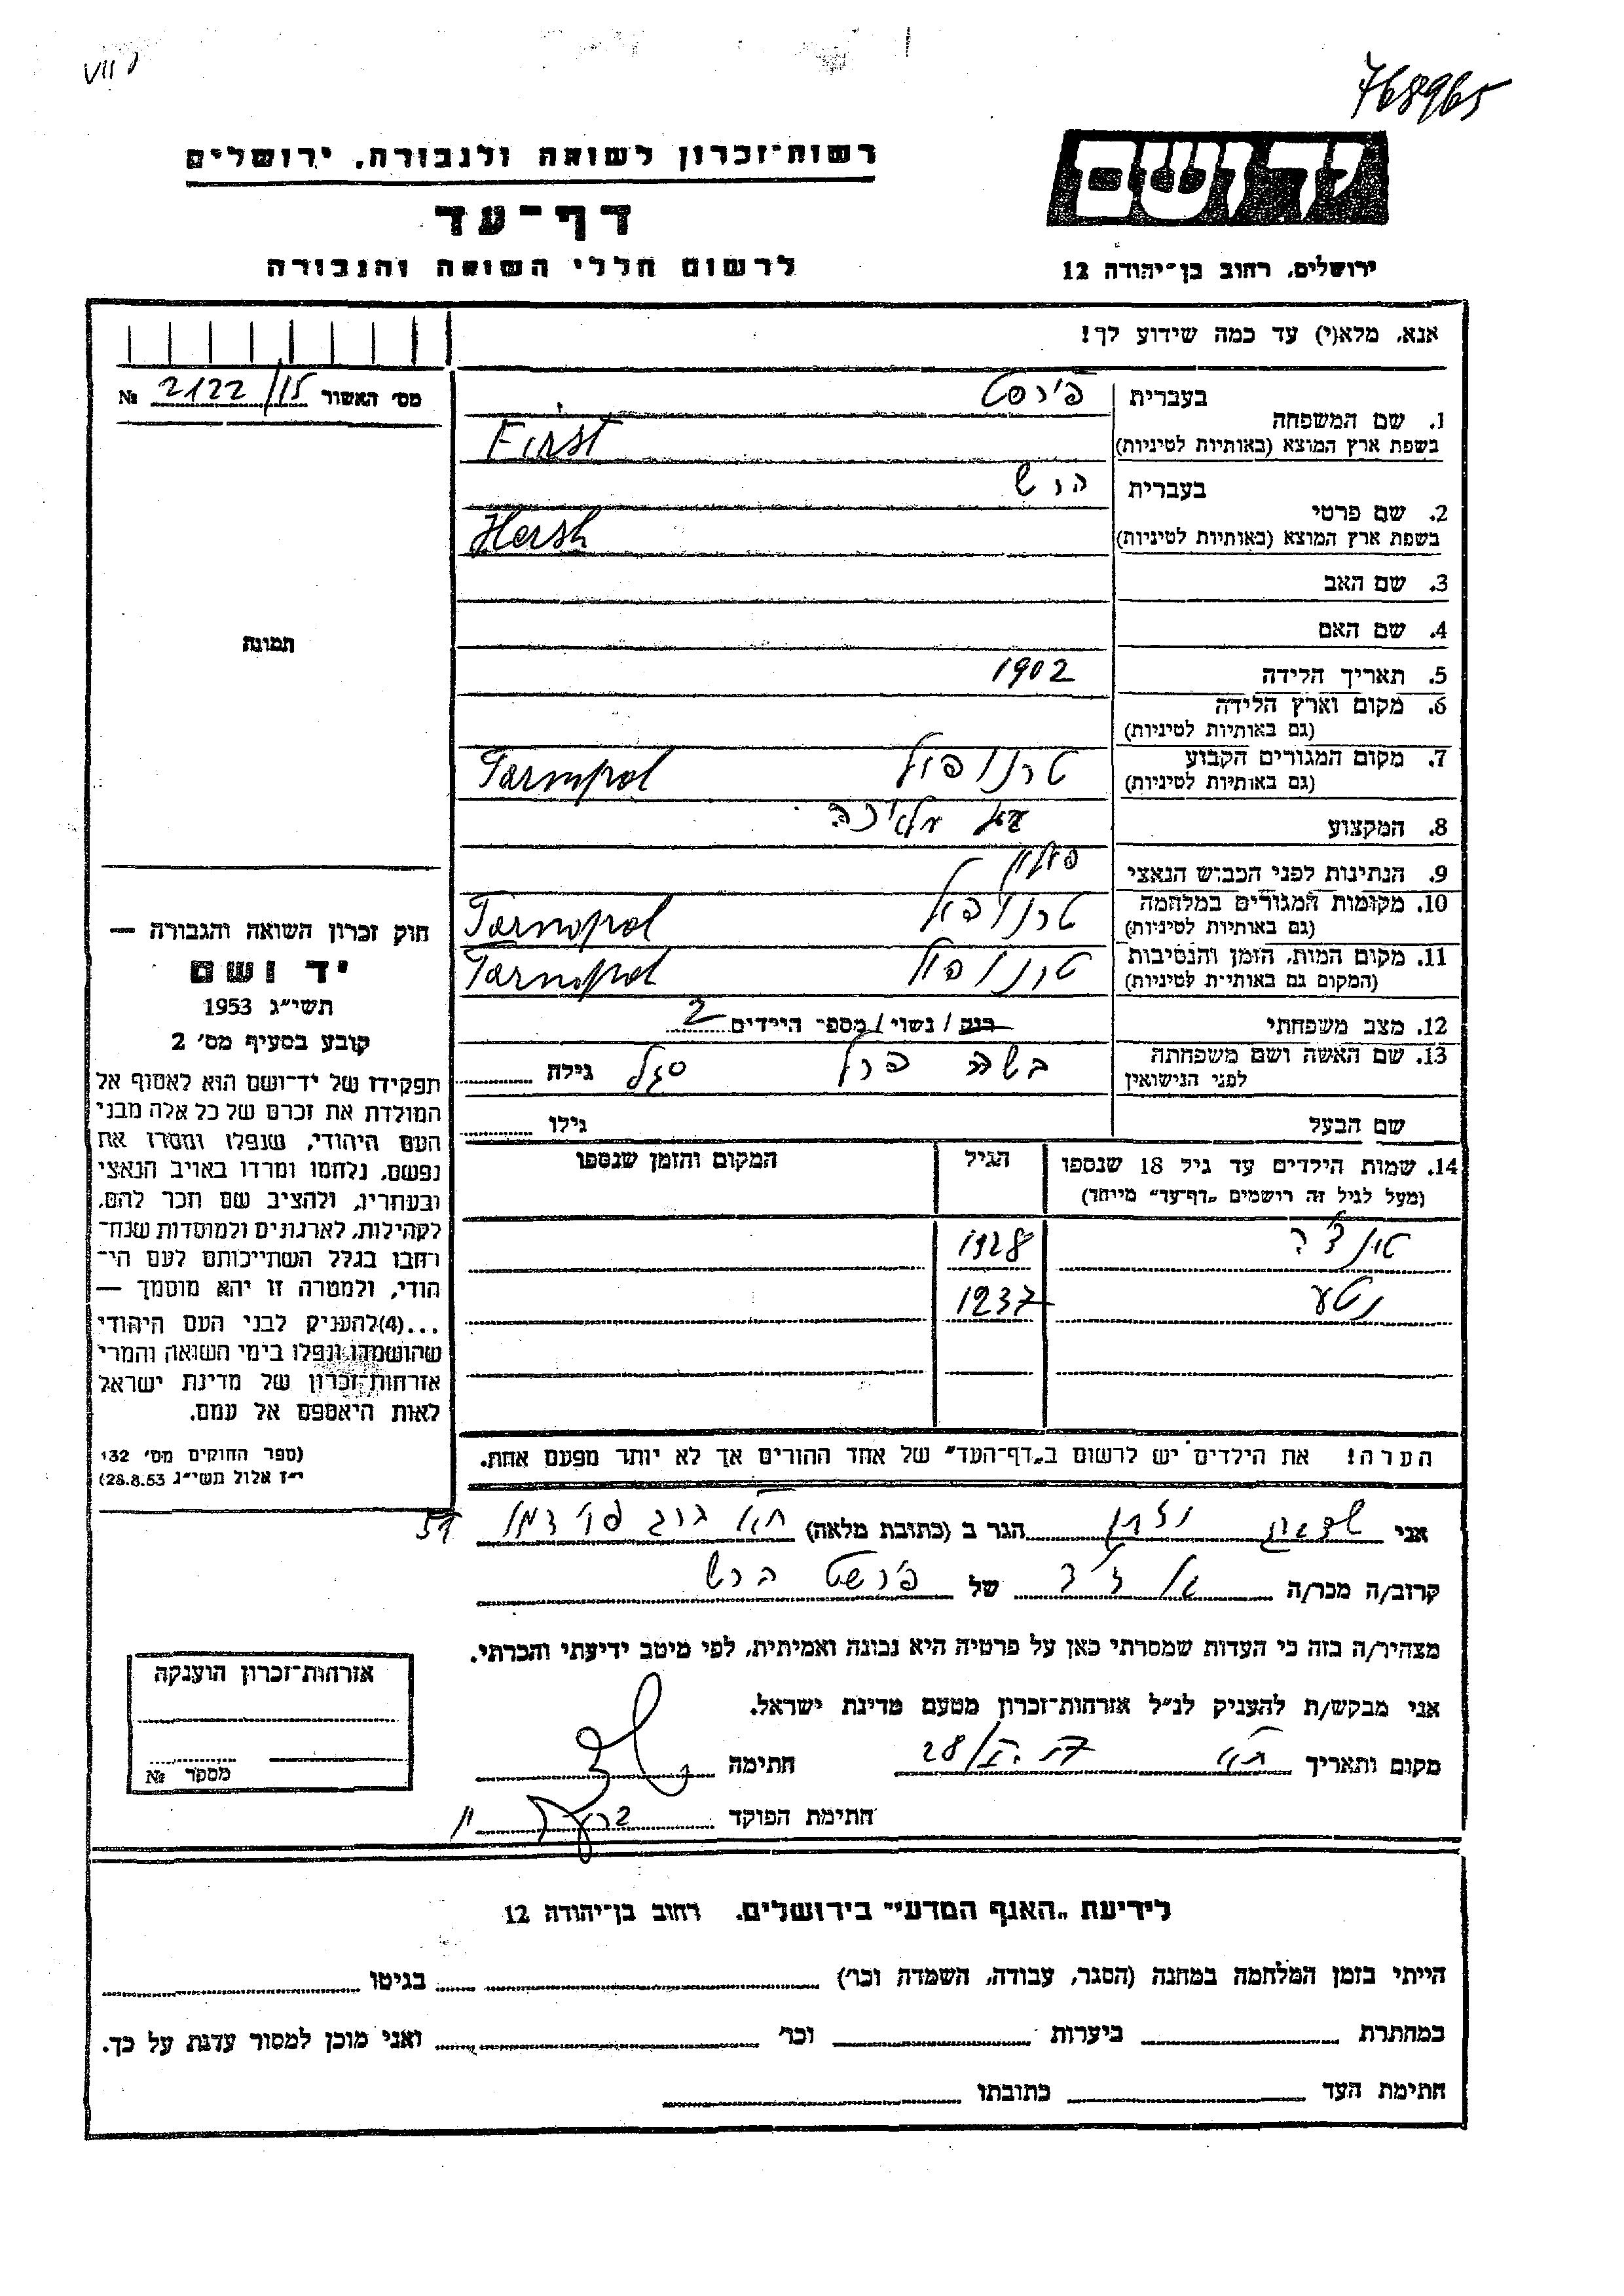 VII
768965
רשות-זכרון לשואה ולגבורה, ירושלים
יד ושם
דף-עד
לרשום חללי השואה והגבורה
ירושלים, רחוב בן-יהודה 12
אנא, מלא(י) עד כמה שידוע לך!
מס׳ האשור 2122/15 №
1. שם המשפחה בעברית פירסט
בשפת ארץ המוצא (באותיות לטיניות) First
2. שם פרטי בעברית הרש
בשפת ארץ המוצא (באותיות לטיניות) Hersh
3. שם האב
4. שם האם
תמונה
5. תאריך הלידה 1902
6. מקום וארץ הלידה
(גם באותיות לטיניות)
7. מקום המגורים הקבוע טרנופול Tarnopol
(גם באותיות לטיניות)
8. המקצוע בעל מלאכה
9. הנתינות לפני הכבוש הנאצי פולין
10. מקומות המגורים במלחמה טרנופול Tarnopol
(גם באותיות לטיניות)
11. מקום המות, הזמן והנסיבות טרנופול Tarnopol
(המקום גם באותיות לטיניות)
12. מצב משפחתי רווק / נשוי / מספר הילדים 2
13. שם האשה ושם משפחתה סגל גילה
לפני הנישואין
שם הבעל גילו
14. שמות הילדים עד גיל 18 שנספו הגיל המקום והזמן שנספו
(מעל לגיל זה רושמים „דף-עד״ מיוחד)
1928
נטע 1937
חוק זכרון השואה והגבורה —
יד ושם
תשי״ג 1953
קובע בסעיף מס׳ 2
תפקידו של יד-ושם הוא לאסוף אל
המולדת את זכרם של כל אלה מבני
העם היהודי, שנפלו ומסרו את
נפשם, נלחמו ומרדו באויב הנאצי
ובעוזריו, ולהציב שם וזכר להם,
לקהילות, לארגונים ולמוסדות שנח-
רבו בגלל השתייכותם לעם הי-
הודי, ולמטרה זו יהא מוסמך —
...(4) להעניק לבני העם היהודי
שהושמדו ונפלו בימי השואה והמרי
אזרחות-זכרון של מדינת ישראל
לאות היאספם אל עמם.
(ספר החוקים מס׳ 132
י״ז אלול תשי״ג 28.8.53)
הערה! את הילדים יש לרשום ב„דף-העד״ של אחד ההורים אך לא יותר מפעם אחת.
אני נתן הגר ב (כתובת מלאה) 51
קרוב/ה מכר/ה של פירשט הרש
מצהיר/ה בזה כי העדות שמסרתי כאן על פרטיה היא נכונה ואמיתית, לפי מיטב ידיעתי והכרתי.
אני מבקש/ת להעניק לנ״ל אזרחות-זכרון מטעם מדינת ישראל.
מקום ותאריך ת״א 28/ חתימה
חתימת הפוקד
אזרחות-זכרון הוענקה
מספר №
לידיעת „האגף המדעי״ בירושלים, רחוב בן-יהודה 12
הייתי בזמן המלחמה במחנה (הסגר, עבודה, השמדה וכו׳) בגיטו
במחתרת ביערות וכו׳ ואני מוכן למסור עדות על כך.
חתימת העד כתובתו